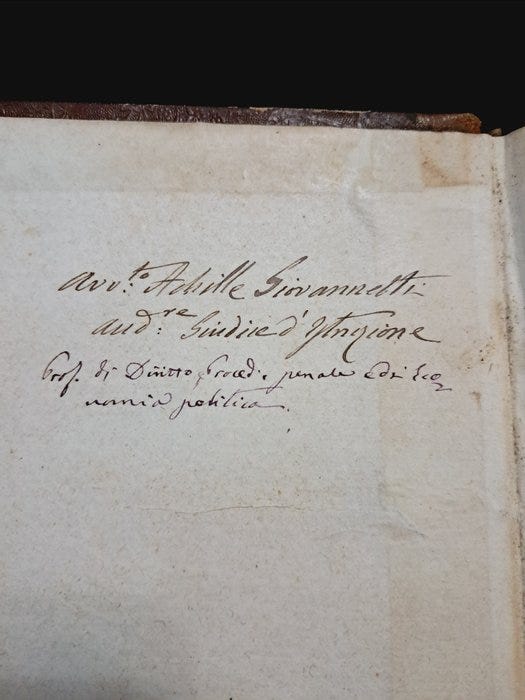 Avv.to Achille Giovannetti
aud.re Giudice d'Istruzione
Prof. di Diritto, proced. penale e di Eco
nomia politica.